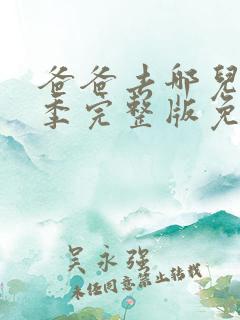 爸爸去哪兒
季完整版免
吴永强
未经同意禁止转载